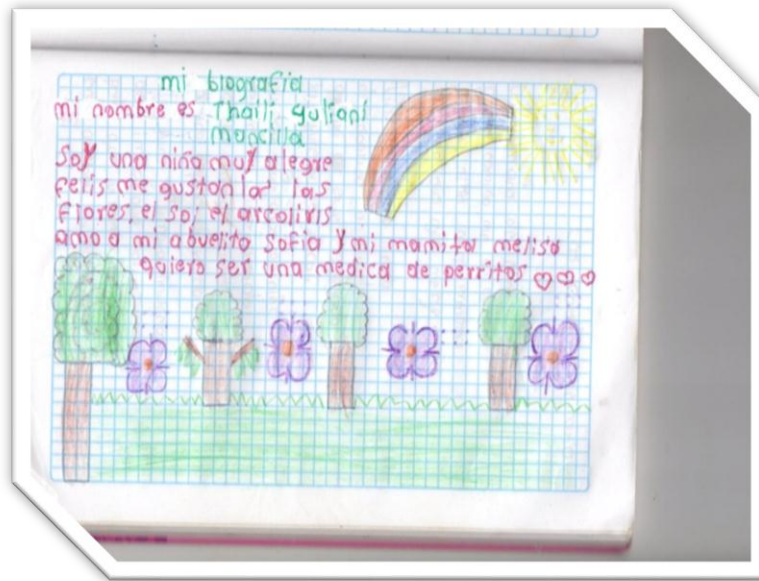 mi biografia
mi nombre es Thaili yuliani
mancilla
Soy una niña muy alegre
felis me gustan las
flores, el sol el arcoliris
amo a mi abuelita Sofia y mi mamita melisa
quiero ser una medica de perritos